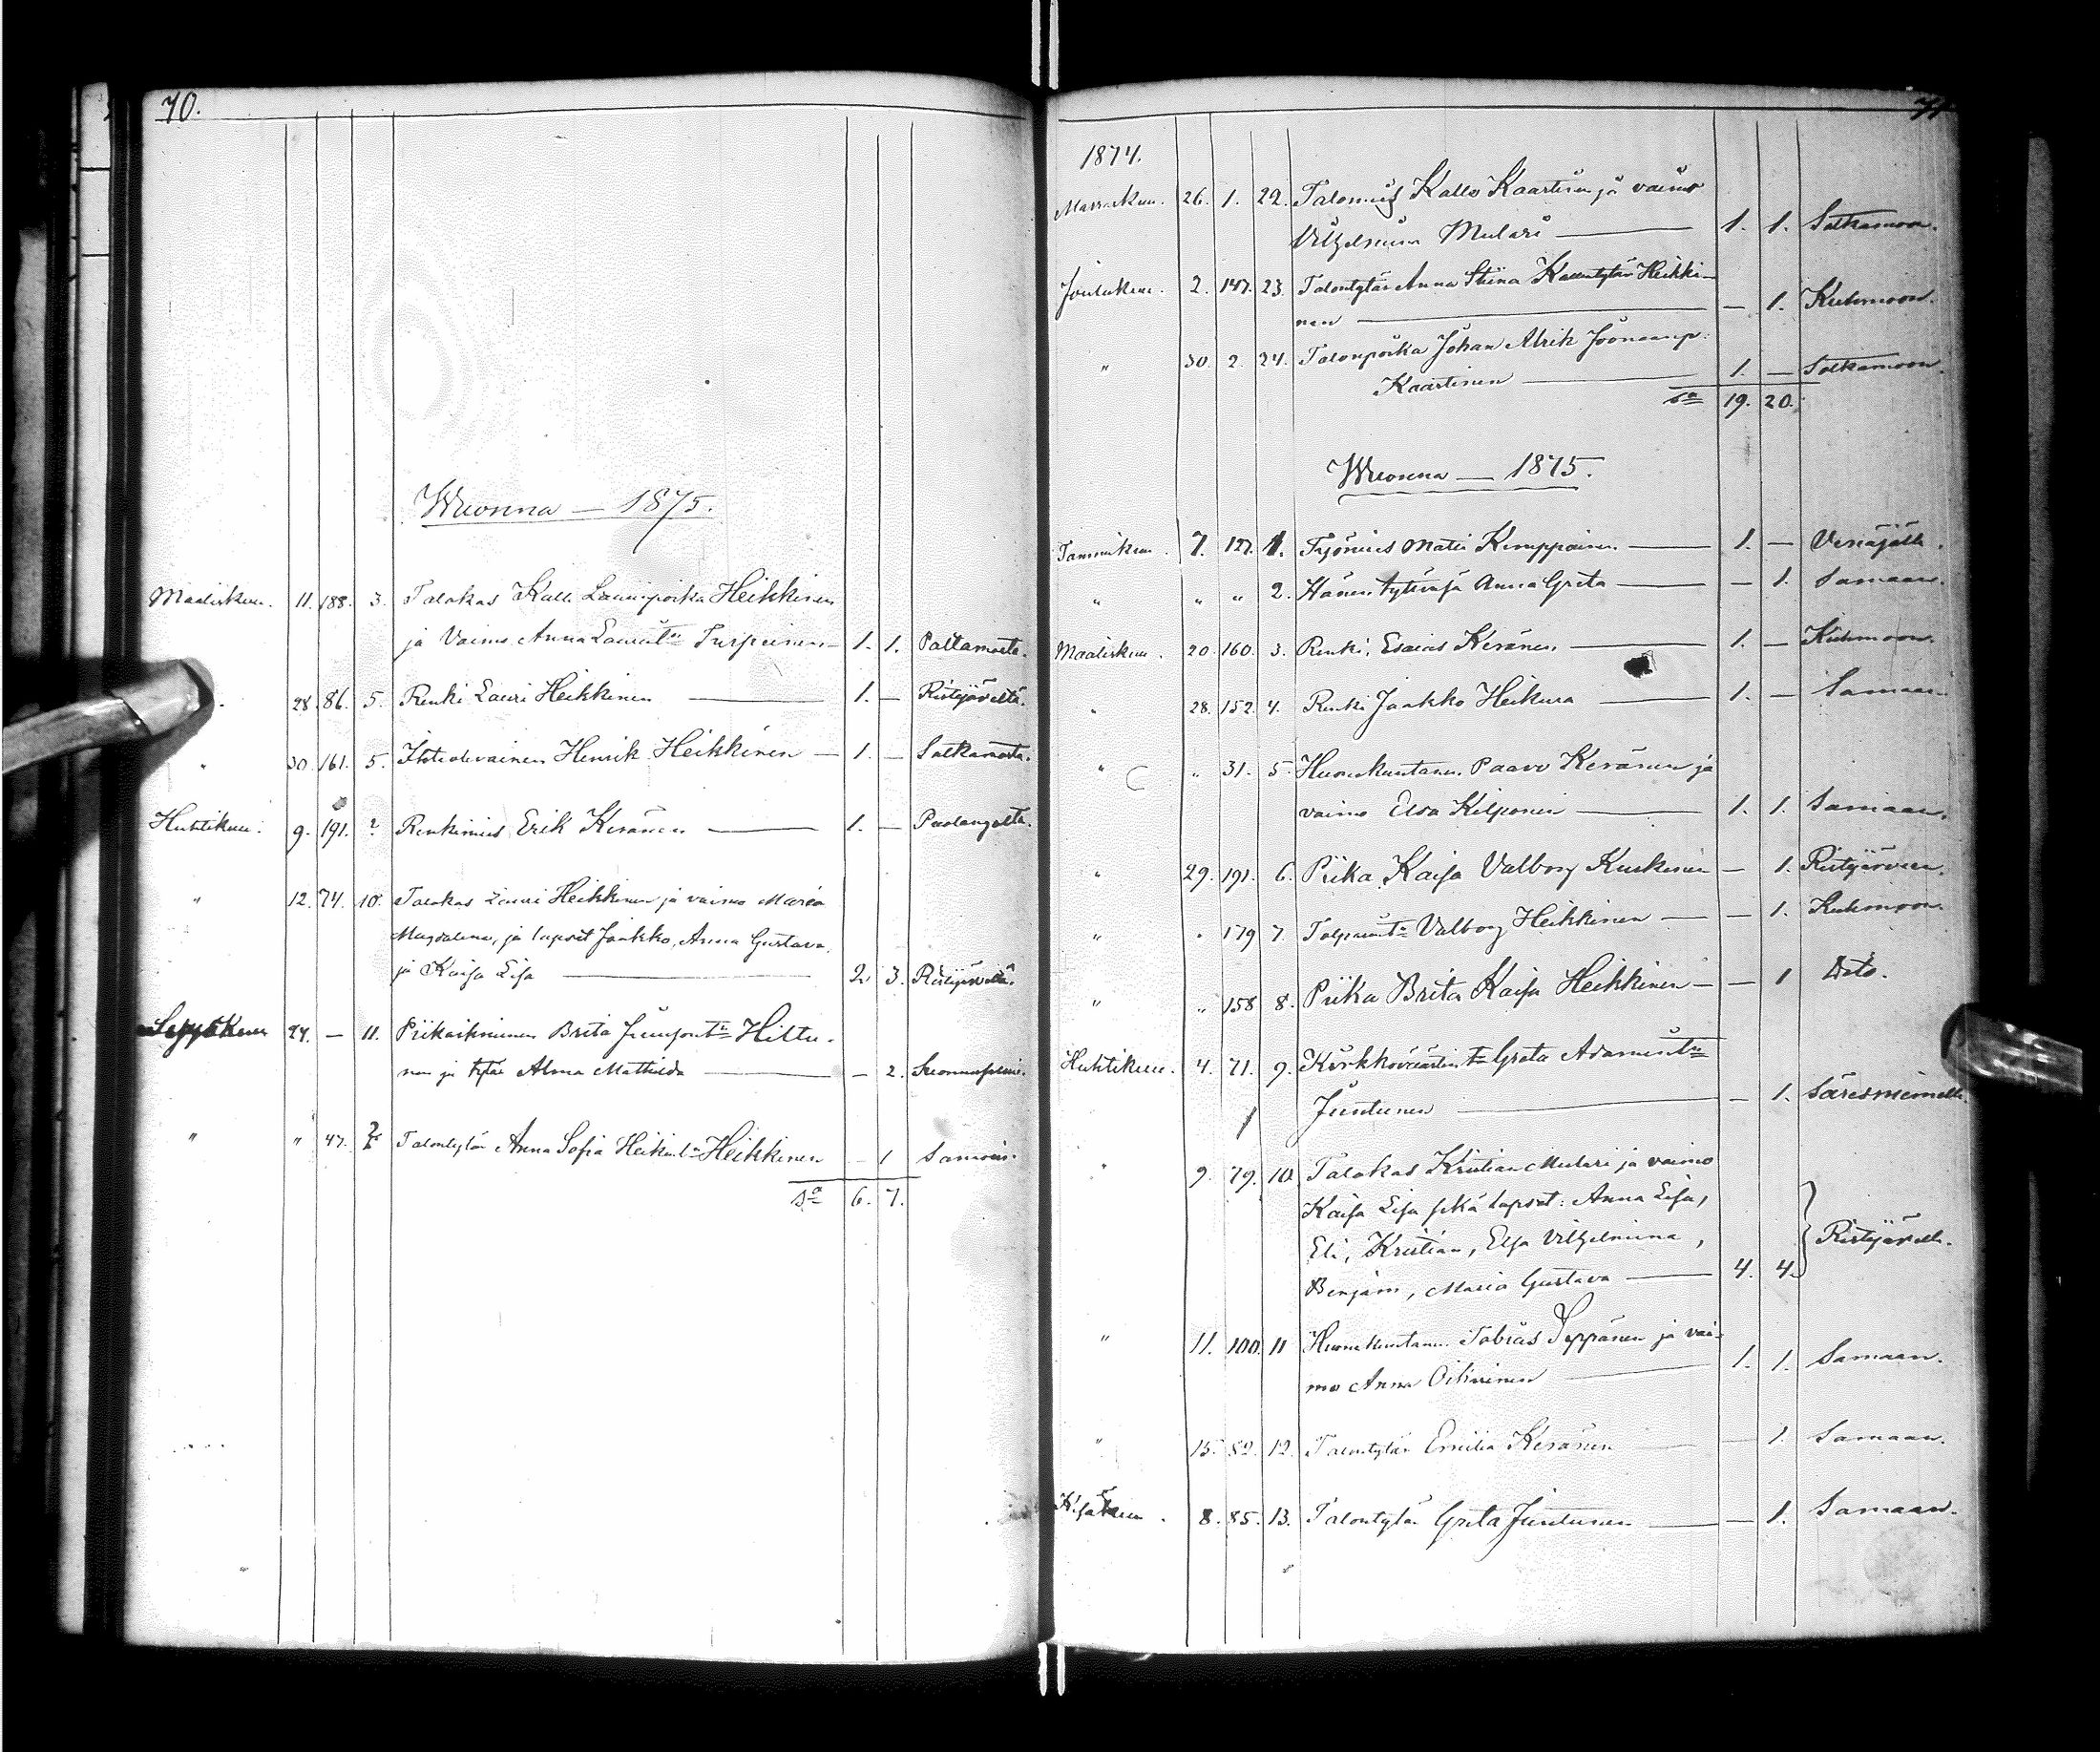 70.
Wuonna — 1875.
Maaliskuu. 11. 188. 3. Talokas Kalle Lauripoika Heikkinen
ja Vaimo Anna Laurint:r Turpeinen — 1. 1. Paltamosta.
28. 86. 5. Renki Lauri Heikkinen — 1. — Ristijäveltä.
" 30. 161. 5. Itteolevainen Henrik Heikkinen — 1. — Sotkamosta.
Huhtikuu. 9. 191. ? Renkimies Erik Keränen — 1. — Puolangolta.
" 12. 74. 10. Talokas Lauri Heikkinen ja vaimo Maria
Magdalena, ja lapset Jaakko, Anna Gustava,
ja Kaisa Lisa — 2. 3. Ristijäveltä.
Syyskuu 24. — 11. Piikaihminen Brita Hiltu-
nen ja tytär Alma Mathilda — — 2.
" " 47. Talontytär Anna Sofia Heikint:r Heikkinen — 1
S:a 6. 7.
71
1874.
Marraskuu. 26. 1. 22. Talomies Kalle Kaartinen ja vaimo
Vilhelmina Mulari — 1. 1. Sotkamoon.
Joulukuu. 2. 147. 23. Talontytär Anna Stina Kallentytär Heikki-
nen — — 1. Kuhmoon.
" 30. 2. 24. Talonpoika Johan Alrik Joonaanp.
Kaartinen — 1. — Sotkamoon.
S:a 19. 20.
Wuonna — 1875.
Tammikuu. 7. 127. 1. Työmies Matti Kemppainen — 1. — Venäjälle.
" " " 2. Hänen tytövänsä Anna Greta — — 1. Samaan.
Maaliskuu. 20. 160. 3. Renki, Esaias Keränen — 1. — Kuhmoon.
" 28. 152. 4. Renki Jaakko Heikura — 1. — Samaan.
" " 31. 5. Huonekuntanen Paavo Keränen ja
vaimo Elsa Kilponen — 1. 1. Samaan.
" 29. 191. 6. Piika Kaisa Valborg Kuskinen — 1. Ristijärveen.
" " 179 7. Valborg Heikkinen — — 1. Kuhmoon.
" " 158 8. Piika Brita Kaisa Heikkinen — — 1 Dito.
Huhtikuu. 4. 71. 9. Greta
Juntunen — — 1. Säresniemelle.
" 9. 79. 10. Talokas Kristian Mulari ja vaimo
Kaisa Lisa sekä lapset: Anna Lisa,
Eli, Kristian, Elsa Vilhelmina,
Benjam, Maria Gustava — 4. 4. Ristijärvelle.
" 11. 100. 11 Huonekuntanen Tobias Seppänen ja vai-
mo Anna Oikarinen — 1. 1. Samaan.
" 15. 82. 12. Talontytär Emilia Keränen — 1. Samaan.
Kesäkuu. 8. 85. 13. Talontytär Greta Juntunen — — 1. Samaan.